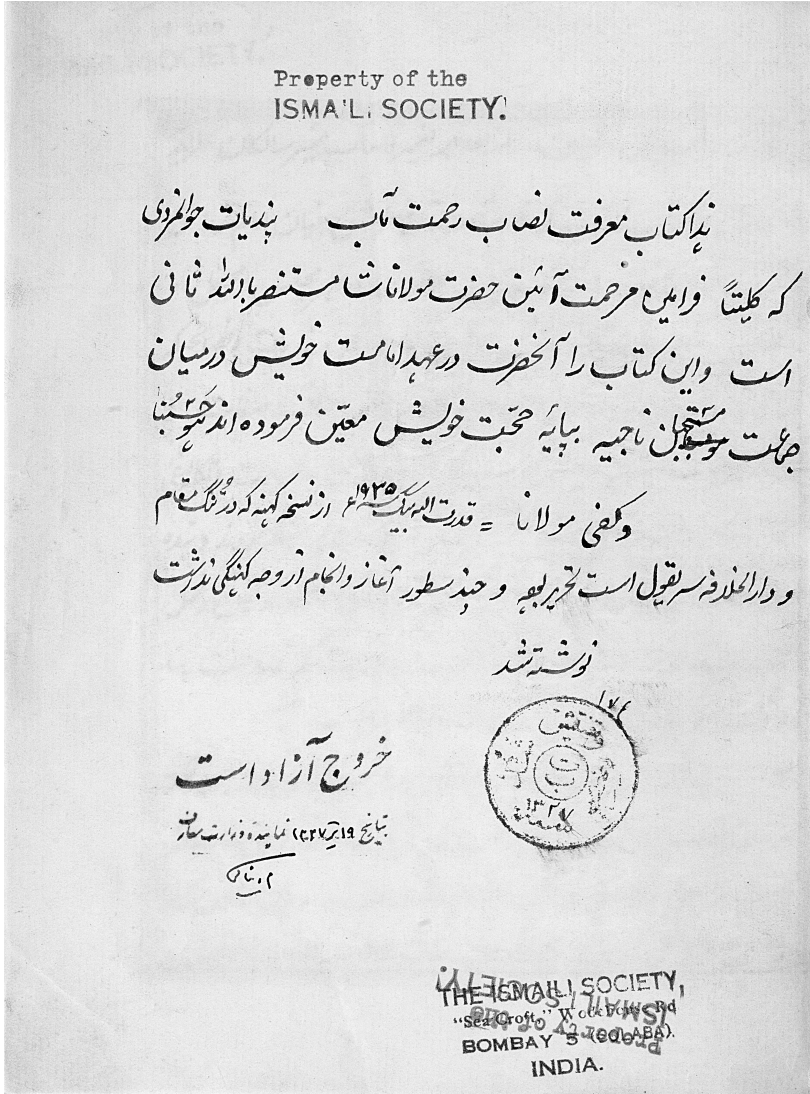 Property of the
ISMA'ILI SOCIETY.
هذا کتاب معرفت نصاب رحمت مآب پندیات جوانمردی
که کلیتاً فرامین مرحمت آئین حضرت مولانا شا مستنصر بالله ثانی
است واین کتاب را آنحضرت در عهد امامت خویش درمیان
جماعت ناجیه بپایهٔ محبت خویش معیّن فرموده اند هو حسبنا
وکفی مولانا = قدرت الله بیگ سنه ۱۹۳۵ء از نسخه کهنه که در مقام
و دار الخلافه سریقول است تحریر یافته و چند سطور آغاز و انجام از وجه کهنگی نداشت
نوشته شد
۱۷۴
تفتیش
۱۳۲۷
خروج آزاد است
بتاریخ ۱۹ تیر ۱۳۲۷ نماینده وزارت معارف
THE ISMAILI SOCIETY,
"Sea Croft," Wodehouse Rd
BOMBAY 5 (COLABA).
INDIA.
Property of the
ISMAILI SOCIETY.